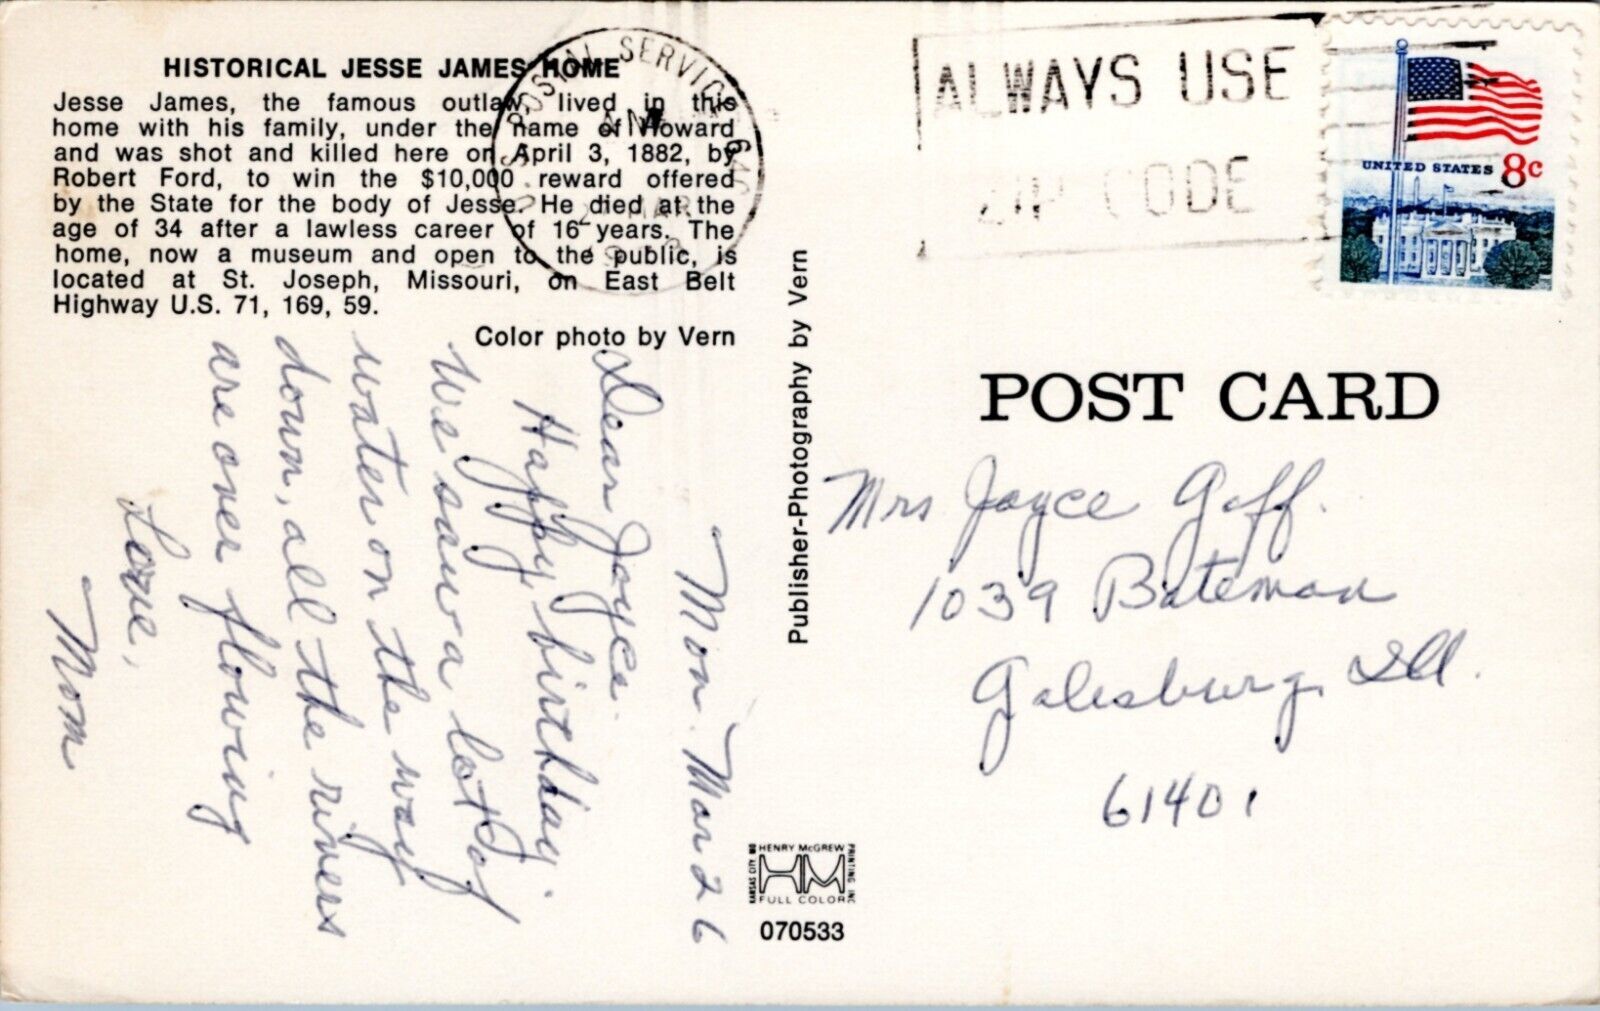 HISTORICAL JESSE JAMES HOME
Jesse James, the famous outlaw, lived in this
home with his family, under the name of Howard
and was shot and killed here on April 3, 1882, by
Robert Ford, to win the $10,000 reward offered
by the State for the body of Jesse. He died at the
age of 34 after a lawless career of 16 years. The
home, now a museum and open to the public, is
located at St. Joseph, Missouri, on East Belt
Highway U.S. 71, 169, 59.
Color photo by Vern
Mon. Mar 26
Dear Joyce.
Happy birthday.
We saw a lot of
water on the way
down, all the rivers
are over flowing
Love,
Mom
Publisher-Photography by Vern
HENRY McGREW
PRINTING INC
KANSAS CITY MO
HM
FULL COLOR
070533
U.S. POSTAL SERVICE
MAR
ALWAYS USE
ZIP CODE
UNITED STATES 8c
POST CARD
Mrs Joyce Goff.
1039 Bateman
Galesburg, Ill.
61401